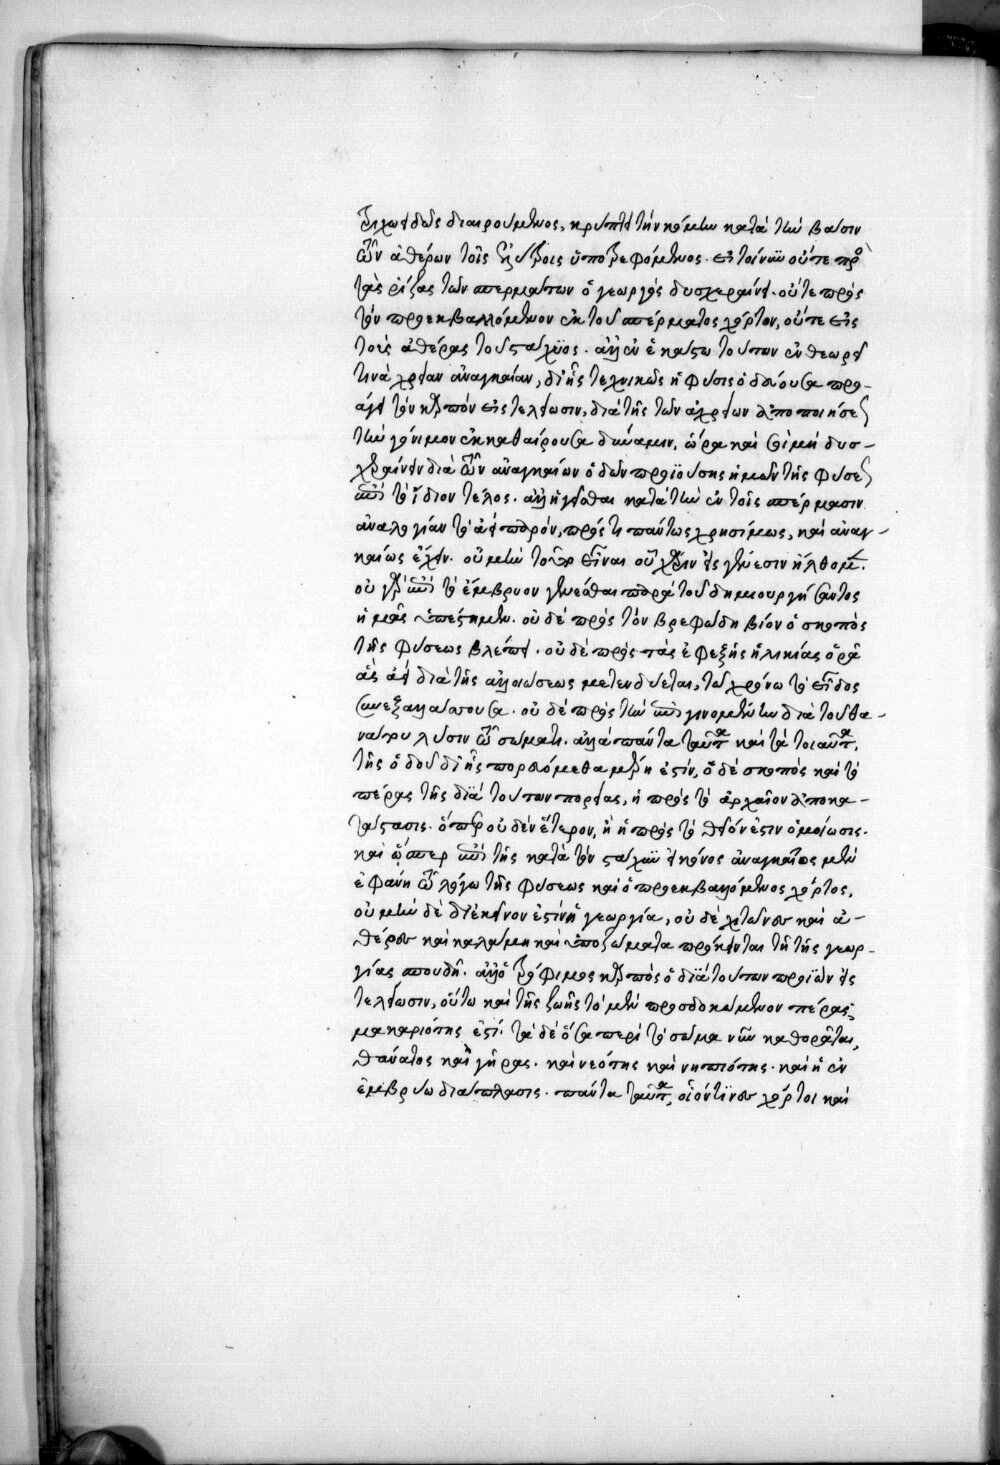 τριχωειδῶς διαιρούμενος, κρύπτει τὴν κόμην κατὰ τὴν βάσιν
τῶν ἀθέρων τοῖς ἐλύτροις ὑποτρεφόμενος. εἰ τοίνυν οὔτε πρὸς
τὰς ῥίζας τῶν σπερμάτων ὁ γεωργὸς δυσχεραίνει. οὔτε πρὸς
τὸν προεκβαλλόμενον ἐκ τοῦ σπέρματος χόρτον, οὔτε εἰς
τοὺς ἀθέρας τοῦ στάχυος. ἀλλ' ἐν ἑκάστω τούτων ἐνθεωρεῖ
τινὰ χρείαν ἀναγκαίαν, δι' ἧς τεχνικῶς ἡ φύσις ὁδεύουσα προ-
άγει τὸν καρπὸν εἰς τελείωσιν, διὰ τῆς τῶν ἀχρείων ἀποποιήσεως
τὴν γόνιμον ἐκκαθαίρουσα δύναμιν, ὥρα καὶ σὲ μὴ δυσ-
χεραίνειν διὰ τῶν ἀναγκαίων ὁδῶν προϊούσης ἡμῶν τῆς φύσεως
ἐπὶ τὸ ἴδιον τέλος. ἀλλ' ἡγεῖσθαι κατὰ τὴν ἐν τοῖς σπέρμασιν
ἀναλογίαν τὸ ἀεὶ παρὸν, πρός τι πάντως χρησίμως, καὶ ἀναγ-
καίως ἔχειν. οὐ μὴν τοῦτο εἶναι οὗ χάριν εἰς γένεσιν ἤλθομεν.
οὐ γὰρ ἐπὶ τὸ ἔμβρυον γενέσθαι παρὰ τοῦ δημιουργήσαντος
ἡμᾶς ὑπέστημεν. οὐδὲ πρὸς τὸν βρεφώδη βίον ὁ σκοπὸς
τῆς φύσεως βλέπει. οὐδὲ πρὸς τὰς ἐφεξῆς ἡλικίας ὁρᾶ
ἃς ἀεὶ διὰ τῆς ἀλλοιώσεως μετενδύεται, τῶ χρόνω τὸ εἶδος
συνεξαλλάσσουσα. οὐδὲ πρὸς τὴν ἐπιγινομένην διὰ τοῦ θα-
νάτου λύσιν τῶ σώματι. ἀλλὰ πάντα ταῦτα καὶ τὰ τοιαῦτα,
τῆς ὁδοῦ δι' ἧς πορευόμεθα μέρη ἐστίν, ὁ δὲ σκοπὸς καὶ τὸ
πέρας τῆς διὰ τούτων πορείας, ἡ πρὸς τὸ ἀρχαῖον ἀποκα-
τάστασις. ὅπερ οὐδὲν ἕτερον, ἢ ἡ πρὸς τὸ θεῖόν ἐστιν ὁμοίωσις.
καὶ ὥσπερ ἐπὶ τῆς κατὰ τὸν στάχυν εἰκόνος ἀναγκαῖος μὲν
ἐφάνη τῶ λόγω τῆς φύσεως καὶ ὁ προεκβαλλόμενος χόρτος,
οὐ μὴν δὲ δι' ἐκεῖνον ἐστὶν ἡ γεωργία, οὐδὲ χιτῶνες καὶ ἀ-
θέρες καὶ καλάμη καὶ ὑποζώματα πρόκεινται τῆ τῆς γεωρ-
γίας σπουδῆ. ἀλλ' ὁ τρόφιμος καρπὸς ὁ διὰ τούτων προϊὼν εἰς
τελείωσιν, οὕτω καὶ τῆς ζωῆς τὸ μὲν προσδοκώμενον πέρας,
μακαριότης ἐστί. τὰ δὲ ὅσα περὶ τὸ σῶμα νῦν καθορᾶται,
θάνατος καὶ γῆρας. καὶ νεότης καὶ νηπιότης. καὶ ἡ ἐν
ἐμβρύω διάπλασις. πάντα ταῦτα, οἱόν τινες χόρτοι καὶ